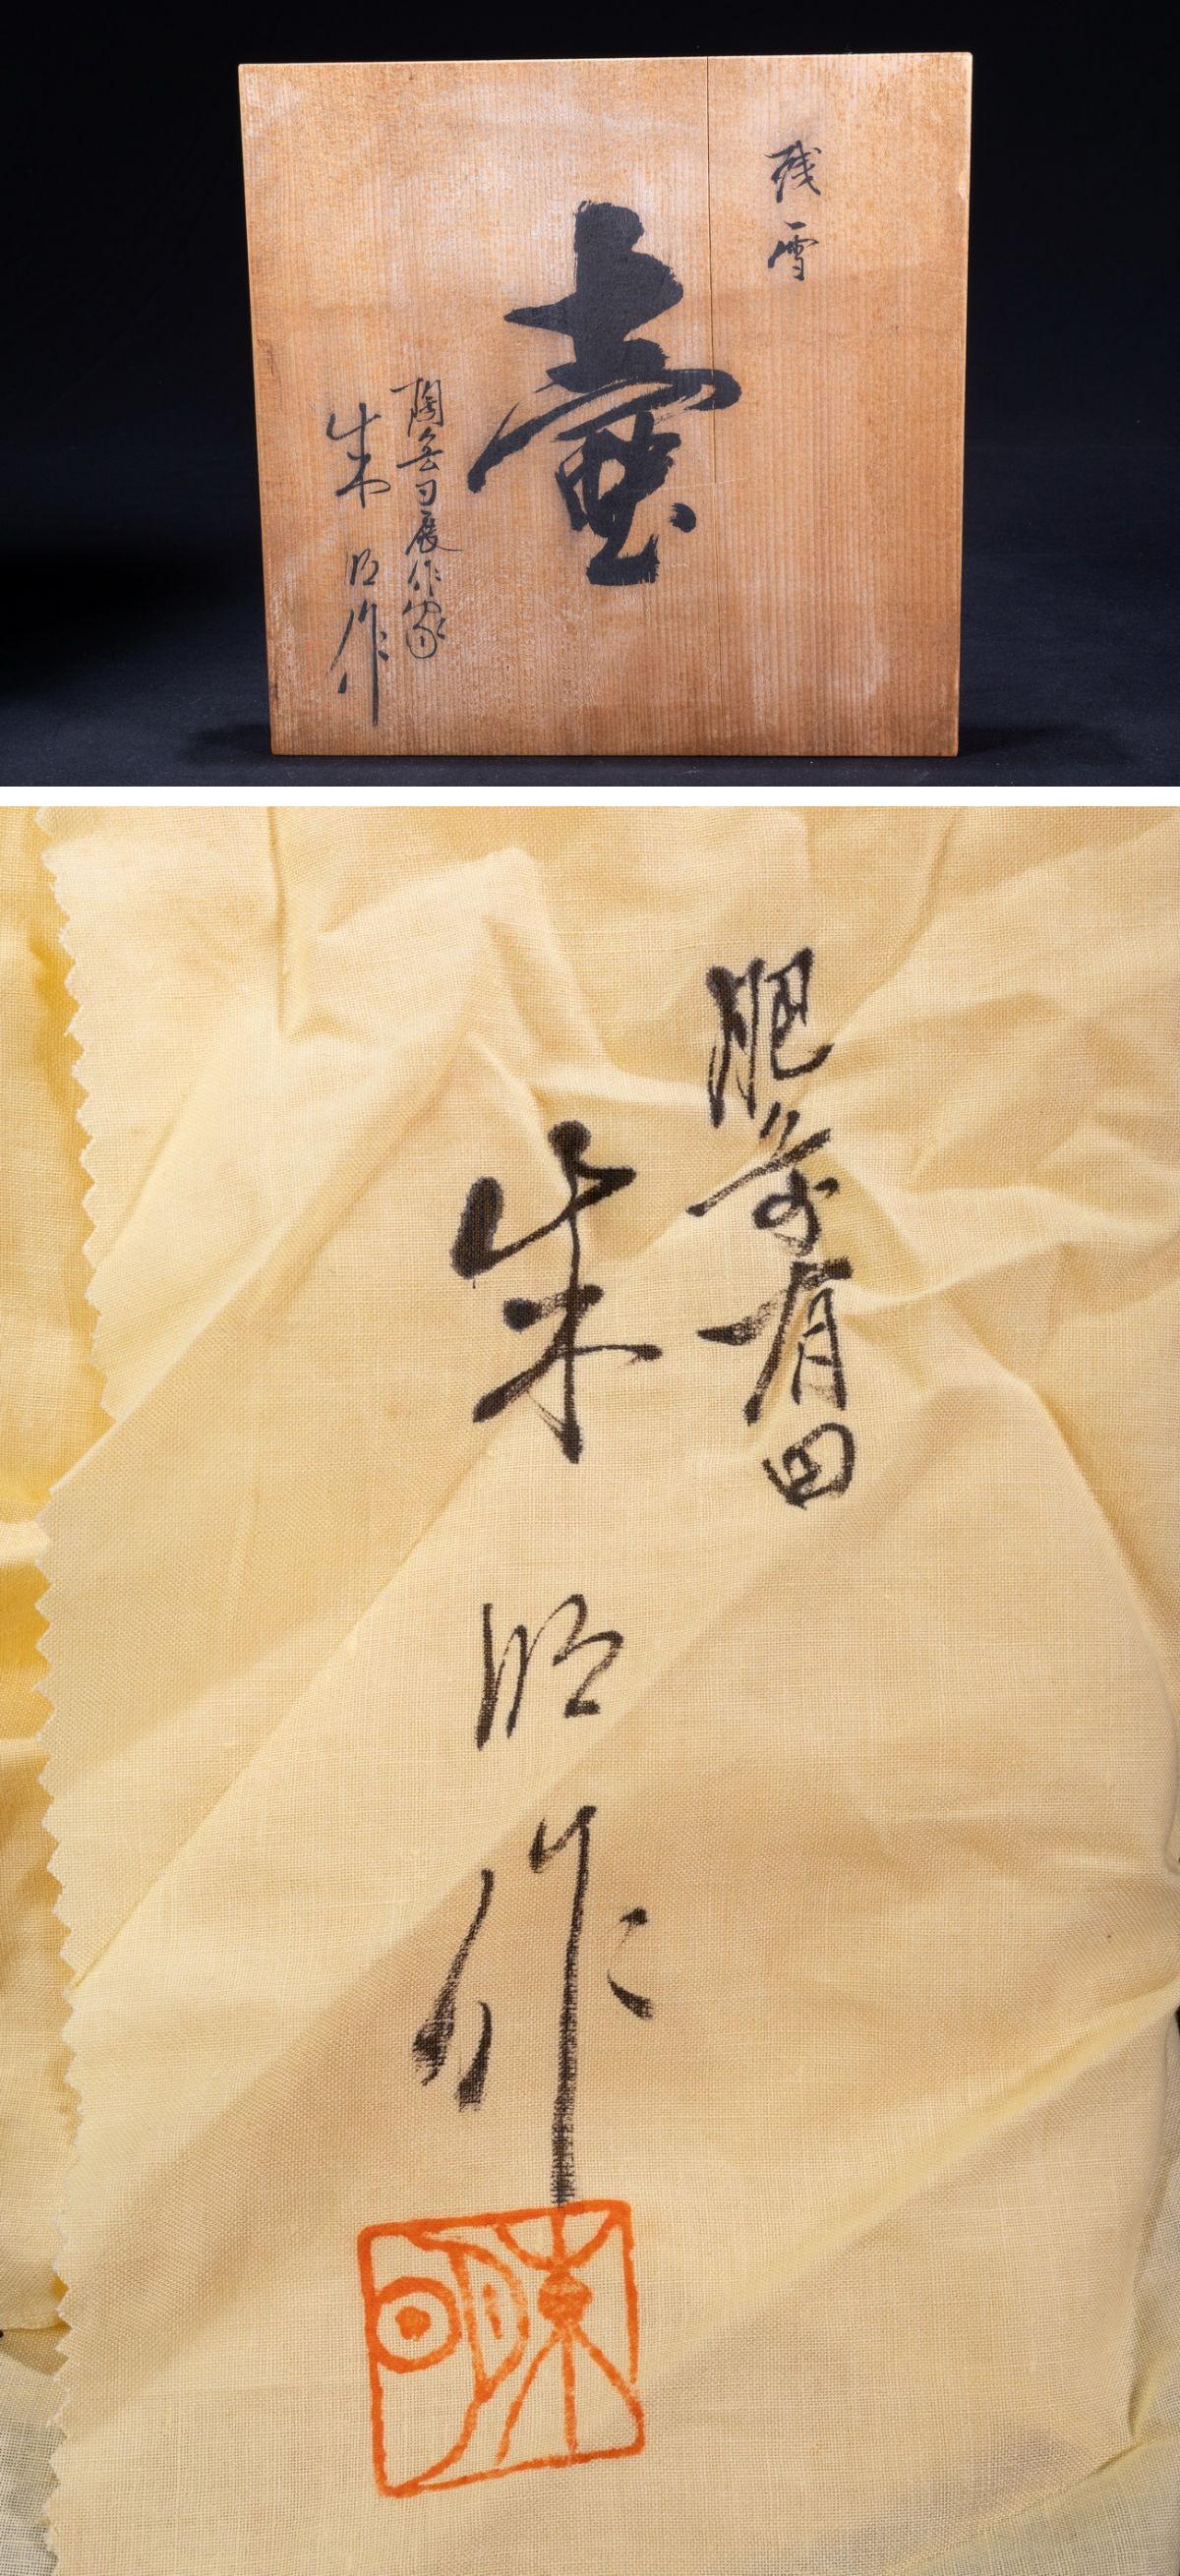 残雪
壷
陶芸日展作家
朱明作
肥前有田
朱明作
朱明